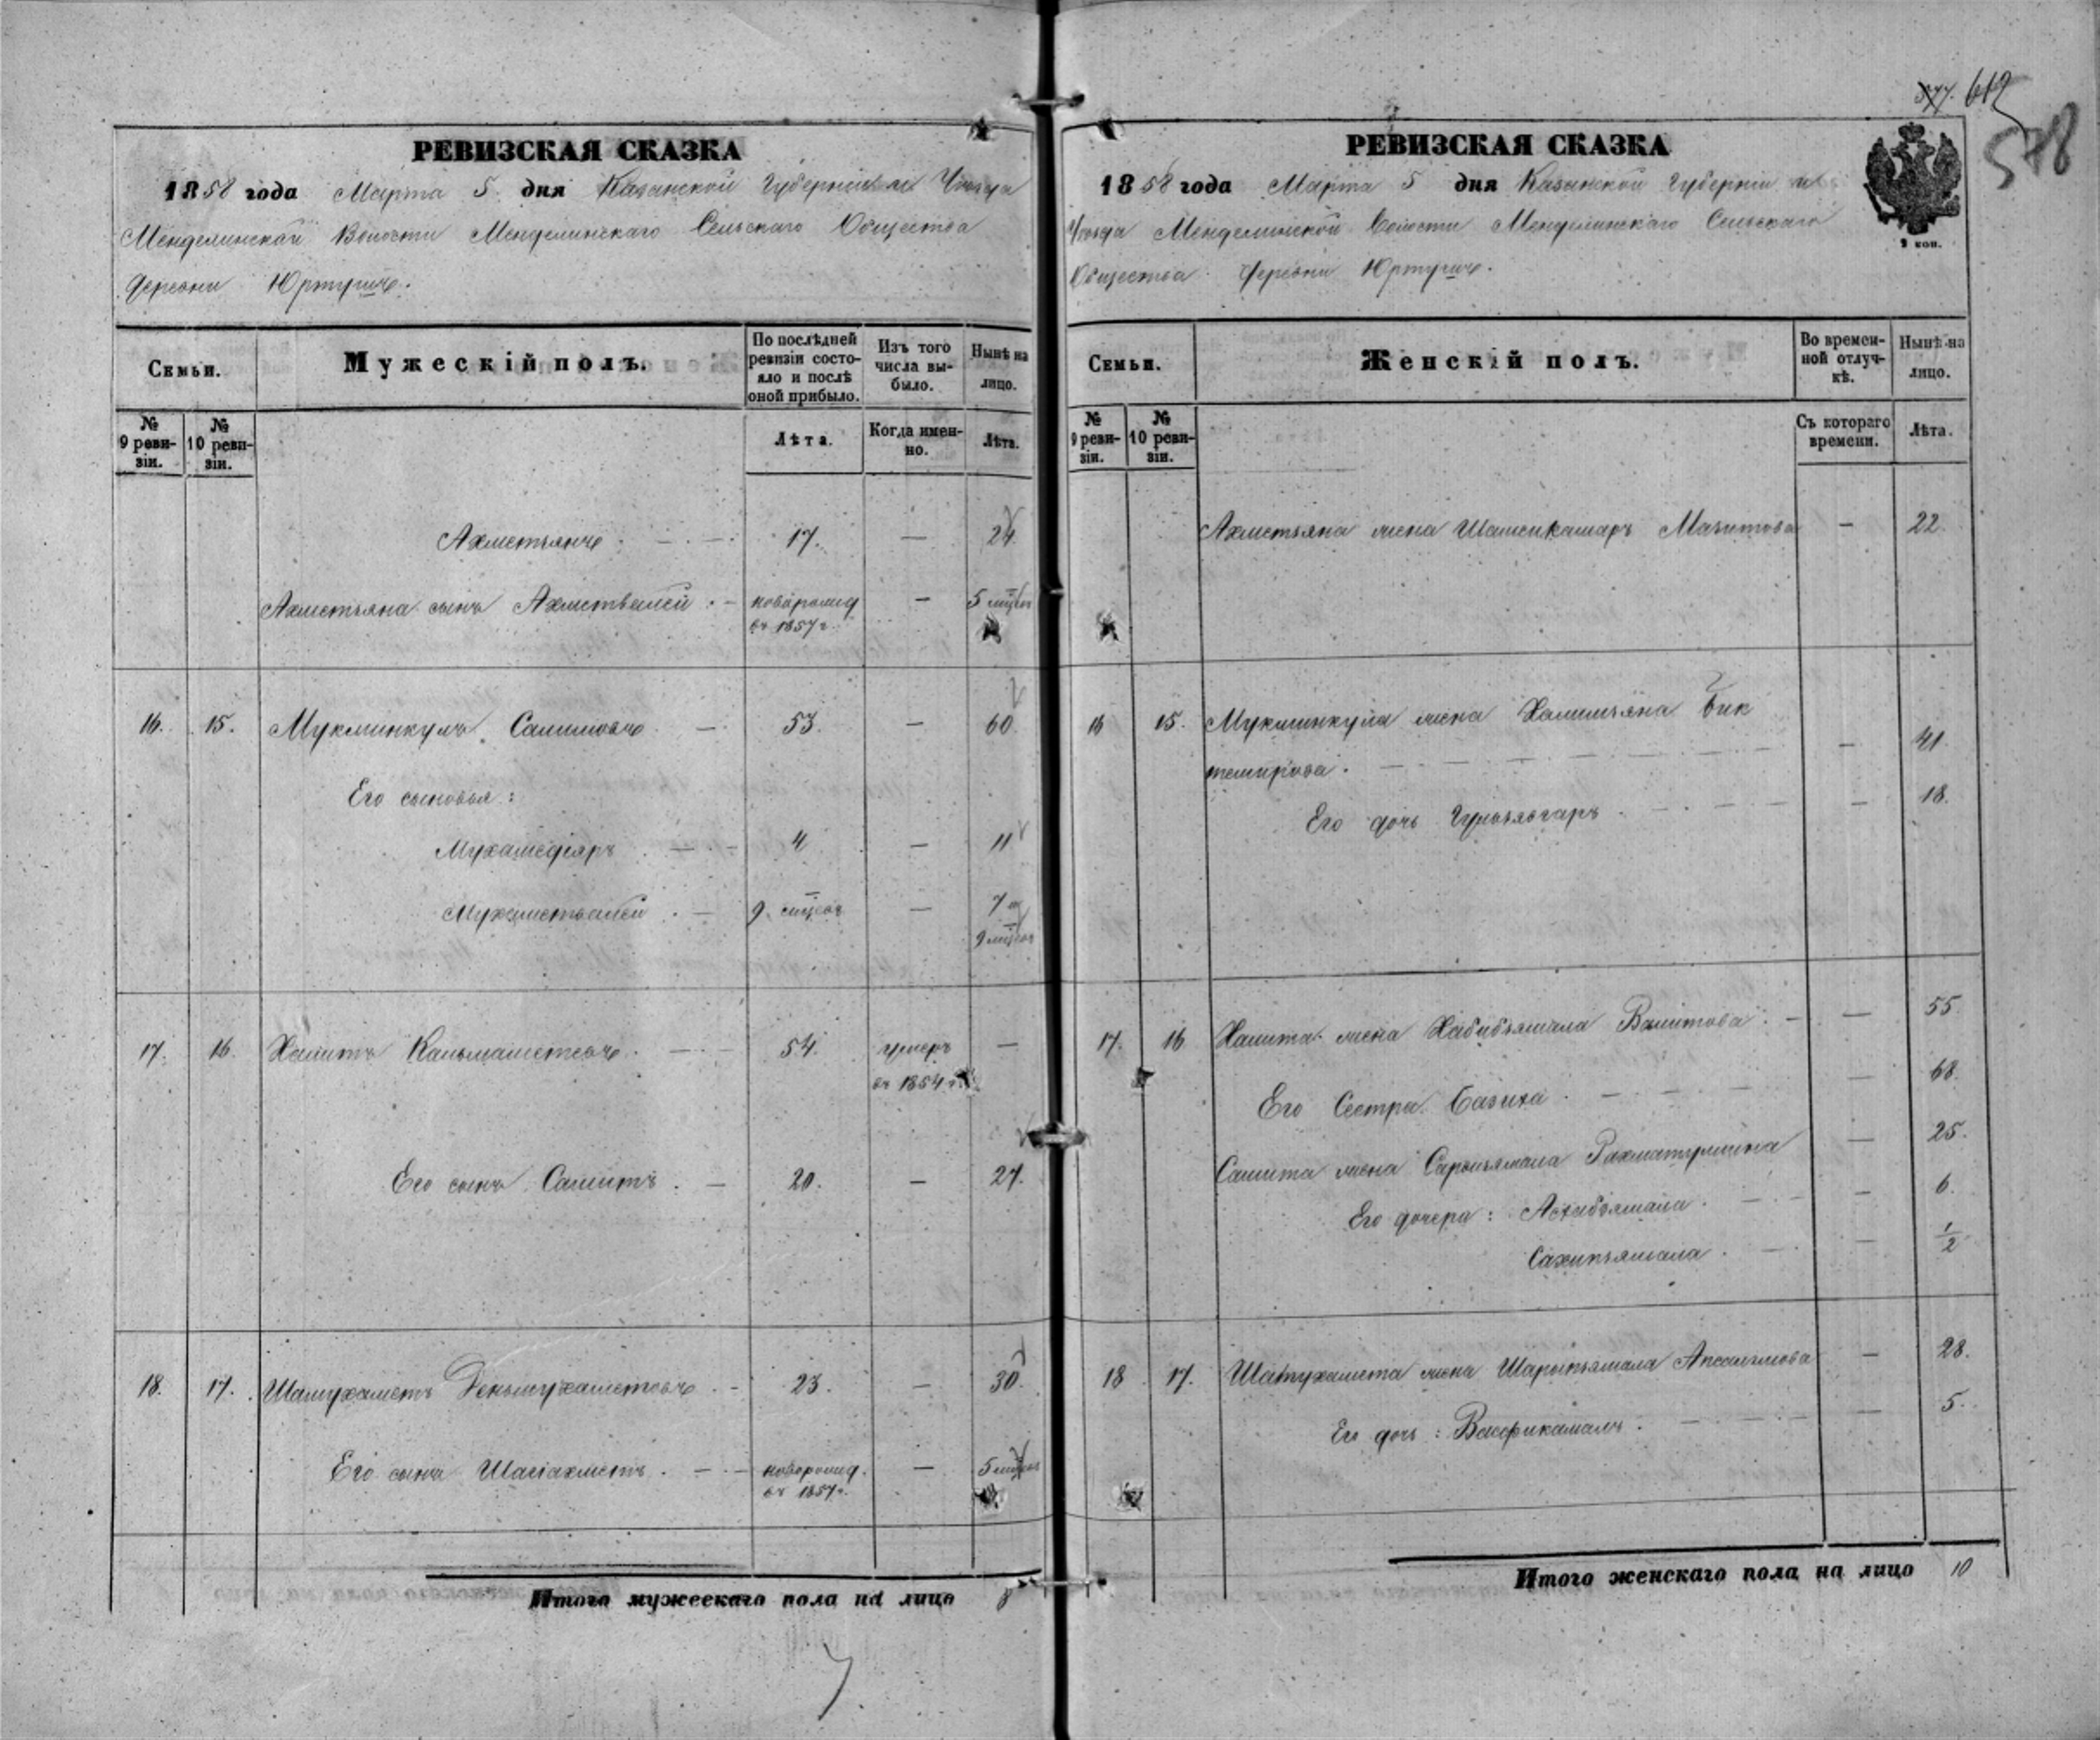 377. 612
578
РЕВИЗСКАЯ СКАЗКА
1858 года Марта 5 дня Казанской Губерніи Уѣзда
Менделинской Волости Менделинскаго Сельскаго Общества
деревни Юртушъ.
Семьи.
Мужескій полъ.
По послѣдней ревизіи состояло и послѣ оной прибыло.
Изъ того числа выбыло.
Нынѣ на лицо.
№ 9 ревизіи.
№ 10 ревизіи.
Лѣта.
Когда именно.
Лѣта.
Ахметьянъ. 17. — 24.
Ахметьяна сынъ Ахметвалей. новорожд — 5 мцвъ
въ 1857 г.
16. 15. Мукминкулъ Салимовъ 53. — 60
Его сыновья:
Мухамедіяръ 4 — 11
Мухаметвалей. 9. мцвъ — 7 и
9 мцвъ
17. 16. Хамитъ Кальмаметевъ. 54. умеръ —
въ 1854 г.
Его сынъ Самитъ. 20. — 27.
18. 17. Шамухаметъ Деньмухаметевъ 23. — 30.
Его сынъ Шагіахметъ. новорожд. — 5 мцвъ
въ 1857 г.
Итого мужескаго пола на лицо 8
7
РЕВИЗСКАЯ СКАЗКА
1858 года Марта 5 дня Казанской Губерніи
Уѣзда Менделинской Волости Менделинскаго Сельскаго
Общества деревни Юртушъ.
2 коп.
Семьи.
Женскій полъ.
Во временной отлучкѣ.
Нынѣ на лицо.
№ 9 ревизіи.
№ 10 ревизіи.
Съ котораго времени.
Лѣта.
Ахметьяна жена Шамсикамаръ Мазитова — 22.
16 15. Мукминкула жена Халимьяна Бик
темирова. — 41.
Его дочь Гульзявгаръ — 18.
17. 16 Хамита жена Хабибзямала Валитова. — 55.
Его Сестра Базиха. — 68.
Самита жена Сарвизямала Рахматуллина — 25.
Его дочера: Асхабзямала. — 6.
Сахипзямала. — 1/2
18 17. Шамухамета жена Шарыпзямала Апсалямова — 28.
Его дочь: Васфикамалъ. — 5.
Итого женскаго пола на лицо 10